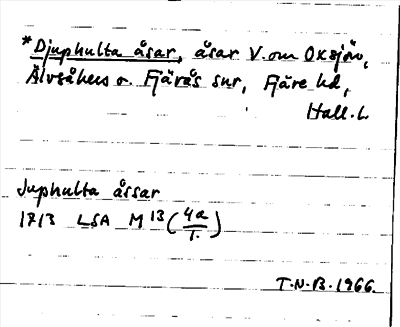 *Djuphulta åsar, åsar V. om Oxsjön,
Älvsåkers o. Fjärås snr, Fjäre hd,
Hall. l.
Juphulta åssar
1713 LSA M 13 (4a/T.)
T.N.B. 1966.